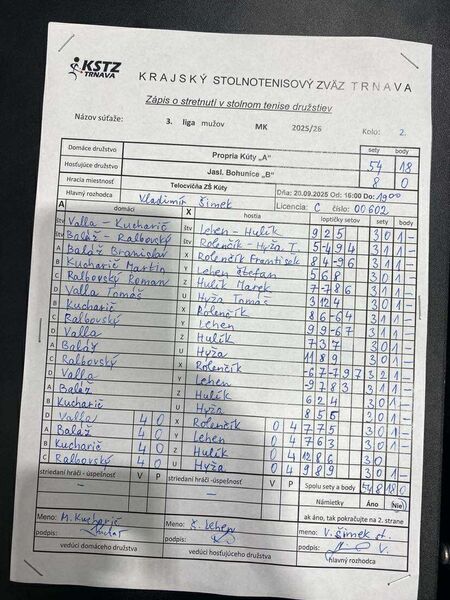 KSTZ
TRNAVA
KRAJSKÝ STOLNOTENISOVÝ ZVÄZ TRNAVA
Zápis o stretnutí v stolnom tenise družstiev
Názov súťaže: 3. liga mužov MK 2025/26 Kolo: 2.
sety body
Domáce družstvo Propria Kúty „A" 54 18
Hosťujúce družstvo Jasl. Bohunice „B" 8 0
Hracia miestnosť Telocvičňa ZŠ Kúty Dňa: 20.09.2025 Od: 16:00 Do: 19:00
Hlavný rozhodca Vladimír Šimek Licencia: C číslo: 00602
A domáci X hostia loptičky setov sety body
štv Valla - Kucharič štv Lehen - Hulík 9 2 5 3 0 1 -
štv Baláž - Ralbovský štv Rolenčík - Hyža T. 5 -4 9 4 3 1 1 -
A Baláž Branislav X Rolenčík František 8 4 -9 6 3 1 1 -
B Kucharič Martin Y Lehen Štefan 5 6 8 3 0 1 -
C Ralbovský Roman Z Hulík Marek 7 -7 8 6 3 1 1 -
D Valla Tomáš U Hyža Tomáš 3 12 4 3 0 1 -
B Kucharič X Rolenčík 8 6 -6 4 3 1 1 -
C Ralbovský Y Lehen 9 9 -6 7 3 1 1 -
D Valla Z Hulík 7 3 7 3 0 1 -
A Baláž U Hyža 11 8 9 3 0 1 -
C Ralbovský X Rolenčík -6 7 -7 9 7 3 2 1 -
D Valla Y Lehen -9 7 8 3 3 1 1 -
A Baláž Z Hulík 6 2 4 3 0 1 -
B Kucharič U Hyža 8 5 5 3 0 1 -
D Valla 4 0 X Rolenčík 0 4 7 7 5 3 0 1 -
A Baláž 4 0 Y Lehen 0 4 7 6 3 3 0 1 -
B Kucharič 4 0 Z Hulík 0 4 12 8 6 3 0
C Ralbovský 4 0 U Hyža 0 4 9 8 9 3 0
striedaní hráči - úspešnosť V P striedaní hráči - úspešnosť V P Spolu sety a body 54 8 18 0
- - Námietky Áno Nie
ak áno, tak pokračujte na 2. strane
Meno: M. Kucharič Meno: Š. Lehen meno: V. Šimek st.
podpis: podpis: podpis:
vedúci domáceho družstva vedúci hosťujúceho družstva hlavný rozhodca